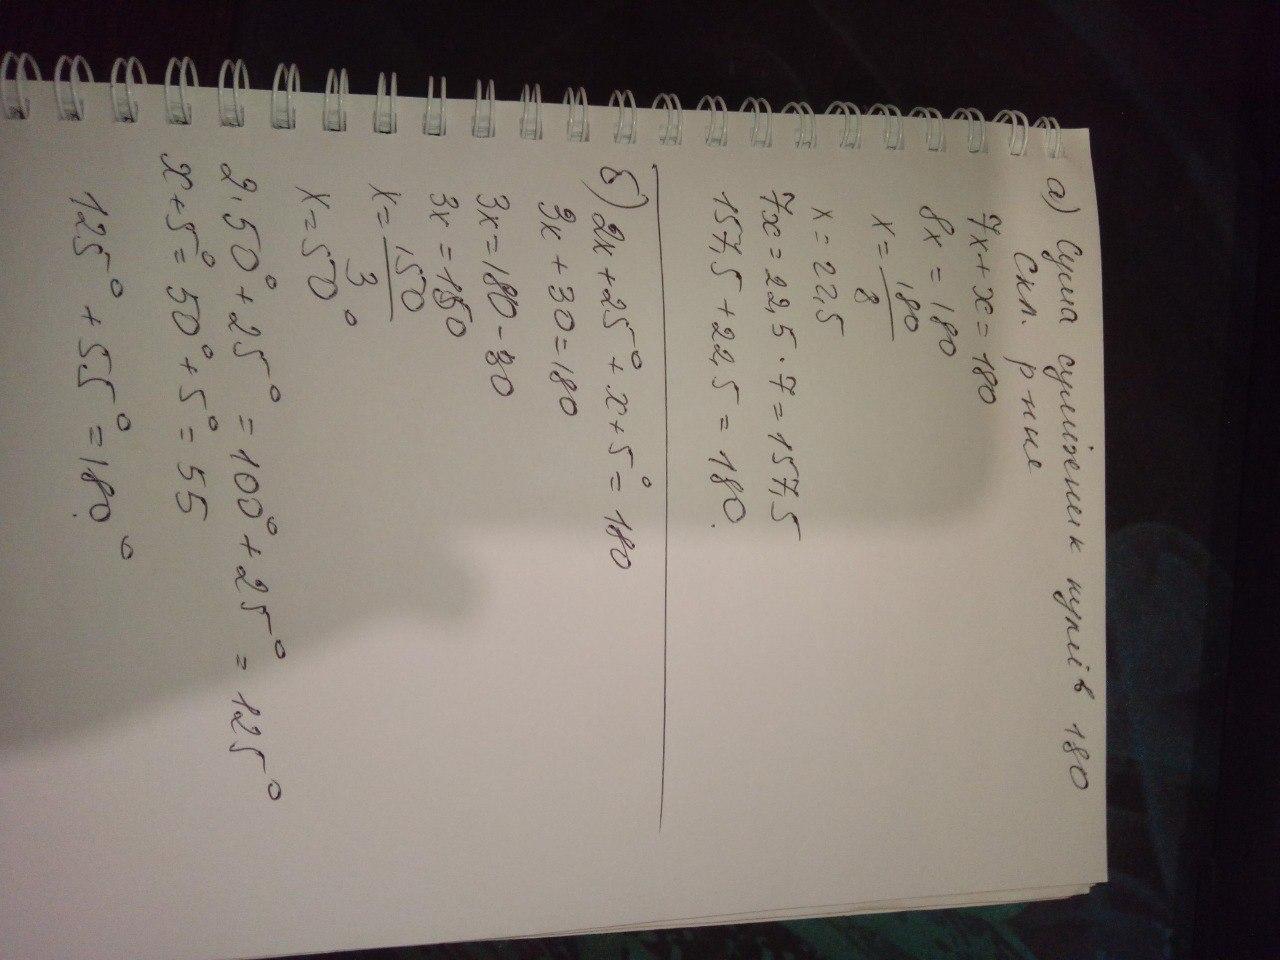 а) Сума суміжних кутів 180
Скл. р-ння
7x + x = 180
8x = 180
x = 180/8
x = 22,5
7x = 22,5 · 7 = 157,5
157,5 + 22,5 = 180.
б) 2x + 25° + x + 5° = 180
3x + 30 = 180
3x = 180 - 30
3x = 150
x = 150/3
x = 50°
2 · 50° + 25° = 100° + 25° = 125°
x + 5° = 50° + 5° = 55
125° + 55° = 180.°